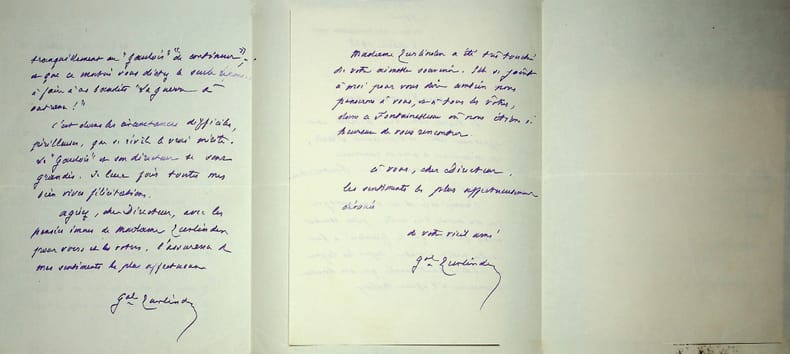 tranquillement au "Gaulois" de continuer,
et que ce matin vous dictez la seule
à faire à ces bandits "La guerre à
outrance !"
C'est dans les circonstances difficiles,
périlleuses, que se révèle le vrai mérite.
Le "Gaulois" et son directeur se sont
grandis. Je leur fais toutes mes
bien vives félicitations.
Agréez, cher Directeur, avec les
pensées émues de Madame Zurlinden
pour vous et les vôtres, l'assurance de
mes sentiments les plus affectueux
Gal Zurlinden
Madame Zurlinden a été très touchée
de votre aimable souvenir. Elle se joint
à moi pour vous dire combien nous
pensons à vous, et à tous les vôtres,
dans ce Fontainebleau où nous étions si
heureux de vous rencontrer.
à vous, cher Directeur,
les sentiments les plus affectueusement
dévoués
de votre vieil ami
Gal Zurlinden